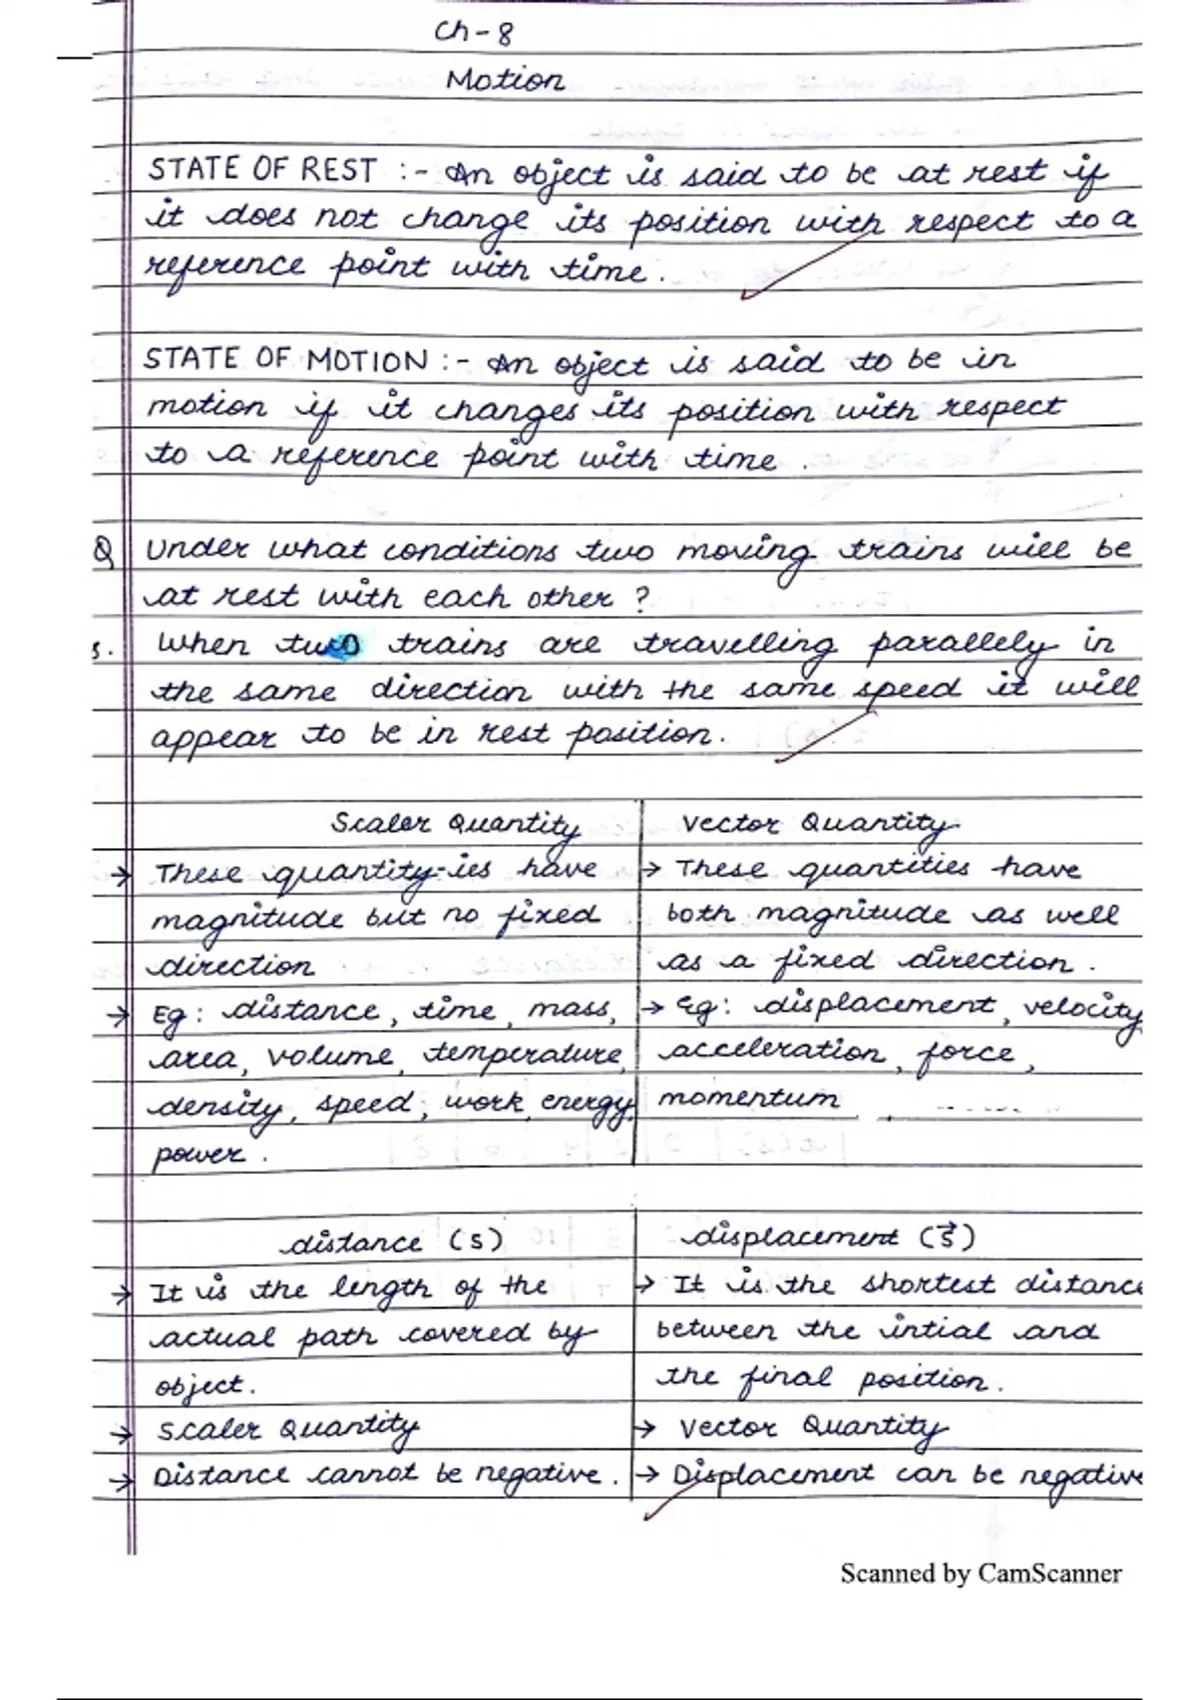 Ch-8
Motion
STATE OF REST :- An object is said to be at rest if
it does not change its position with respect to a
reference point with time.
STATE OF MOTION :- An object is said to be in
motion if it changes its position with respect
to a reference point with time.
Q Under what conditions two moving trains will be
at rest with each other ?
s. When two trains are travelling parallely in
the same direction with the same speed it will
appear to be in rest position.
Scaler Quantity
→ These quantity-ies have
magnitude but no fixed
direction
→ Eg: distance, time, mass,
area, volume, temperature,
density, speed, work, energy,
power.
Vector Quantity
→ These quantities have
both magnitude as well
as a fixed direction.
→ Eg: displacement, velocity
acceleration, force,
momentum
distance (s)
→ It is the length of the
actual path covered by
object.
→ Scaler Quantity
→ Distance cannot be negative.
displacement (s⃗)
→ It is the shortest distance
between the intial and
the final position.
→ Vector Quantity
→ Displacement can be negative
Scanned by CamScanner